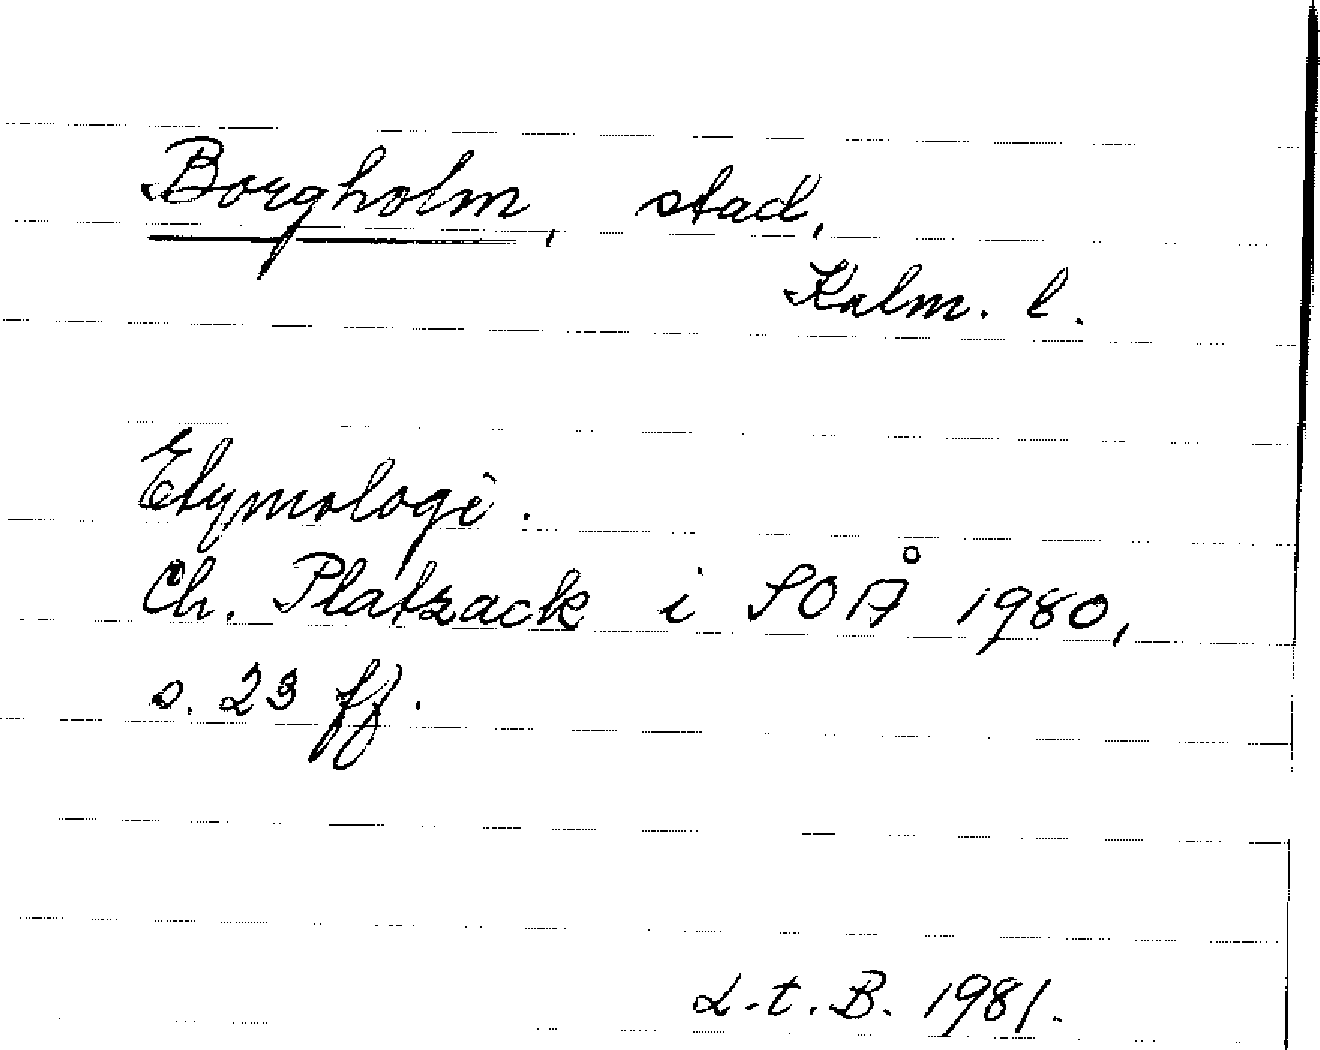 Borgholm, stad,
Kalm. l.
Etymologi.
Ch. Platzack i SOÅ 1980,
s. 23 ff.
L-t. B. 1981.